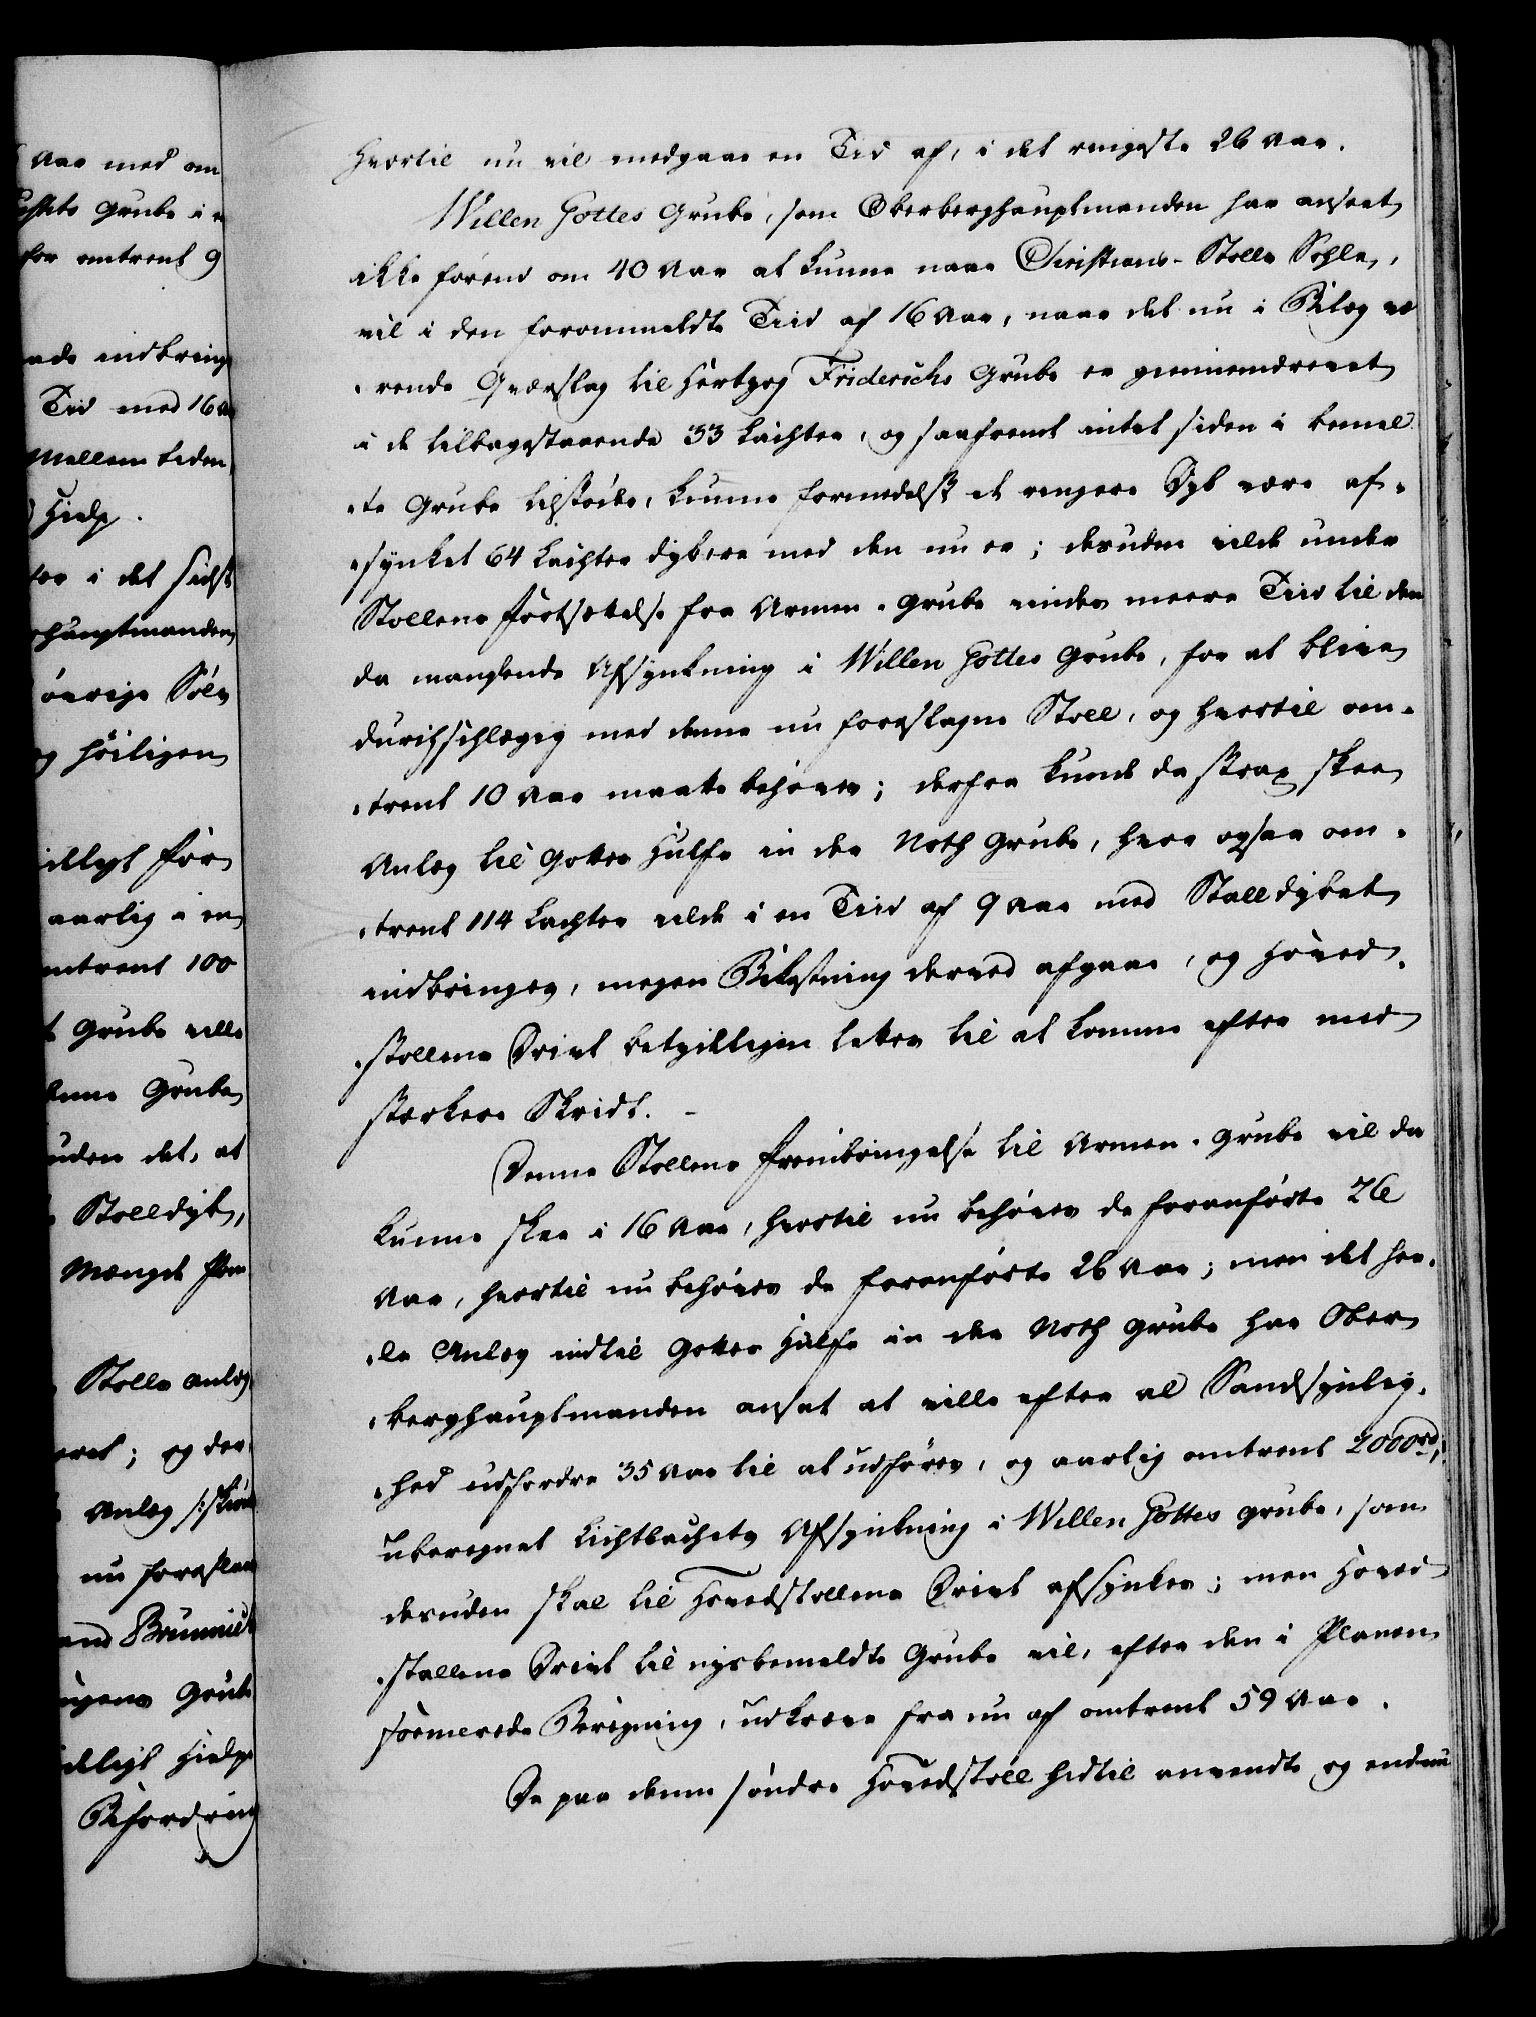 Aar med om
Grube i
for omtrent 9
indbringe
Tid med 16
Mellem tiden
Hielp.
for i det
hauptmanden
øvrige Søln
og höiligen
for
aarlig i en
omtrent 100
Grube ville
denne Grube
uden det, at
Stolldyb,
Mængde
Stolle anlæg
; og der
Anlæg
nu foreslaa
Brünnich
Grube
Hielpe
Befordring
hvortil nu vil medgaae en Tid af, i det ringeste 26 Aar.
Willen Gottes Grube, som Oberberghauptmanden har anseet
ikke førend om 40 Aar at kunne naae Christians-Stolle Sohle,
vil i den forommeldte Tiid af 16 Aar, naar det nu i Belæg væ
-rende Qværslag til Hertzog Friderichs Grube er giennemdrevet
i de tilbagestaaende 33 Lachter, og saafremt intet siden i bemel
-te Grube tilstøder, kunne formedelst et ringere Dyb være af-
-synket 64 Lachter dybere med den nu er; desuden vilde under
Stollens Fortsættelse fra Armen-Grube vindes meere Tiid til den
da manglende Afsynkning i Willen Gottes Grube, for at blive
durchschlægig med denne nu foreslagne Stoll, og hvortil om-
-trent 10 Aar maatte behøves; derfra kunde da strax skee
Anlæg til Gottes Hülfe in der Noth Grube, hvor ogsaa om-
-trent 114 Lachter vilde i en Tiid af 9 Aar med Stolldybet
indbringes, megen Bekostning derved afgaae, og Hoved-
-stollens Drivt betydeligen lettes til at komme efter med
stærkere Skridt. -
Denne Stollens Frembringelse til Armen-Grube vil da
kunne skee i 16 Aar, hvortil nu behøves de foranførte 26
Aar, hvortil nu behøves de foranførte 26 Aar; men det hee-
-le Anlæg indtil Gottes Hülfe in der Noth Grube har Ober
-berghauptmanden anseet at ville efter al Sandsynlig-
-hed udfordre 35 Aar til at udføres, og aarlig omtrent 2000 rd,
uberegnet Lichtlochets Afsynkning i Willen Gottes Grube, som
desuden skal til Hovedstollens Drivt afsynkes; men Hoved
-stollens Drivt til nysbemeldte Grube vil, efter den i Planen
formerede Beregning, udkræve fra nu af omtrent 59 Aar.
De paa denne søndre Hovedstoll hidtil anvendte og endnu